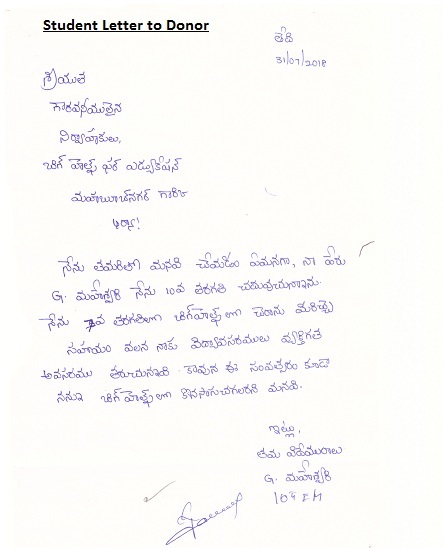 Student Letter to Donor
తేది
31/07/2018
శ్రీయుత
గౌరవనీయులైన
నిర్వాహకులు,
బిగ్ హెల్ప్ ఫర్ ఎడ్యుకేషన్
మహబూబ్‌నగర్ గారికి
ఆర్యా!
నేను తమరితో మనవి చేయడం ఏమనగా, నా పేరు
G. మహేశ్వరి నేను 10వ తరగతి చదువుచున్నాను.
నేను 7వ తరగతిలో బిగ్‌హెల్ప్ లో చేరాను మరియు
సహాయం వలన నాకు విద్యావసరములు వ్యక్తిగత
అవసరము తీరుచున్నవి. కావున ఈ సంవత్సరం కూడా
నన్ను బిగ్ హెల్ప్ లో కొనసాగించగలరని మనవి.
ఇట్లు,
తమ విధేయురాలు
G. మహేశ్వరి
10th EM